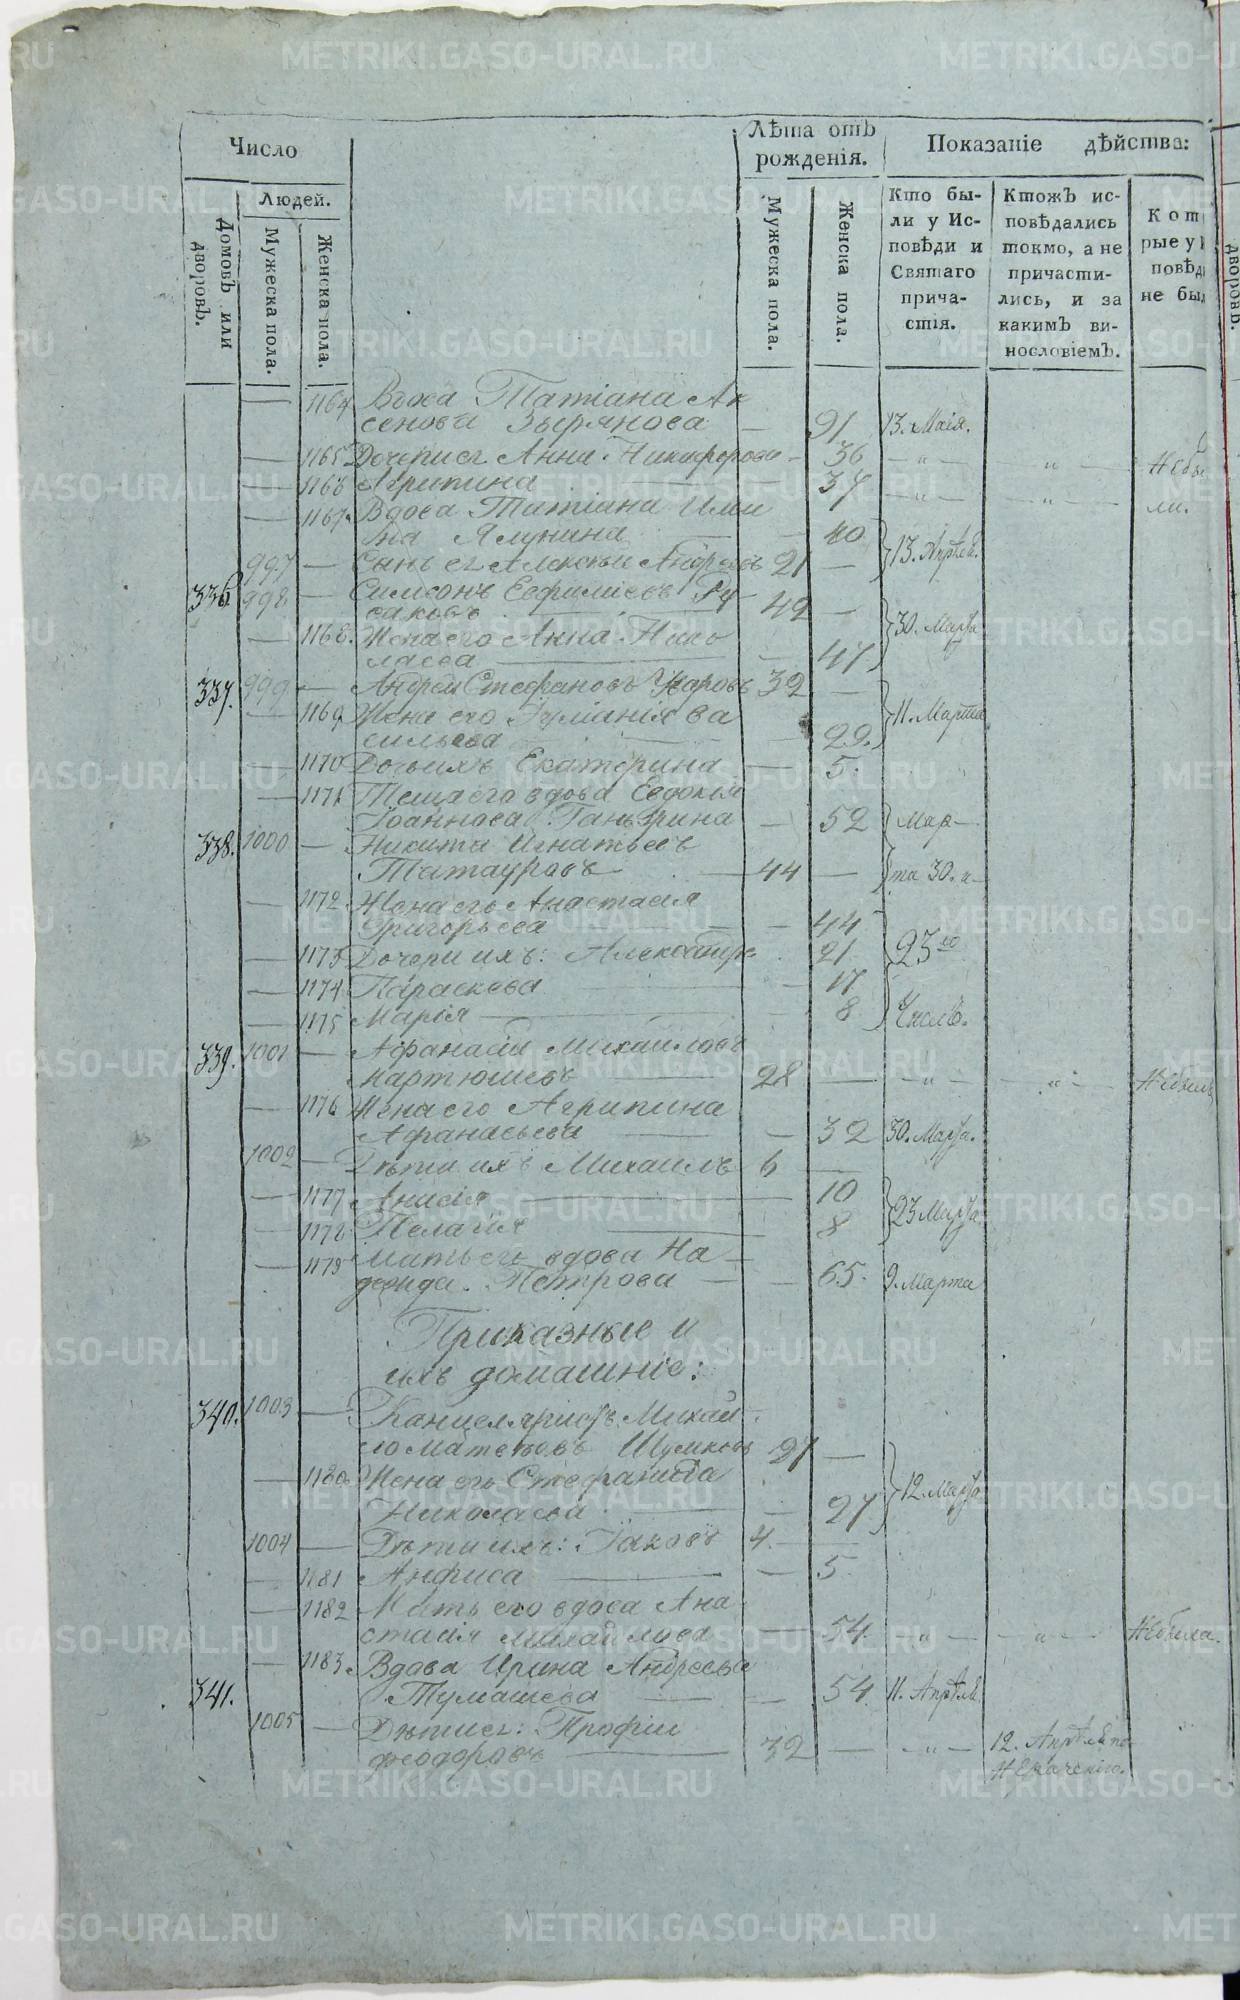 Число
Лѣта отъ рожденія.
Показаніе дѣйства:
Людей.
Домовъ или дворовъ.
Мужеска пола.
Женска пола.
Мужеска пола.
Женска пола.
Кто были у Исповѣди и Святаго причастія.
Ктожъ исповѣдались токмо, а не причастились, и за какимъ винословіемъ.
Кот
рые у
повѣд
не бы
дворовъ.
— 1164 Вдова Татіана Ак
сенова Зырянова — 91 13. Маія.
— 1165 Дочери ея Анна Никифорова — 36 — „ — — „ — Небы
— 1166 Агрипина — 34 — „ — — „ — ли.
— 1167. Вдова Татіана
Ялунина — 40
997 — Сынъ ея Алексѣй Андреевъ 21 — 13. Апрѣля.
336 998 — Симеонъ Евфиміевъ Ру
саковъ 49 —
— 1168. Жена его Анна Нико
лаева — 47 30. Марта
337. 999 — Андрей Стефановъ 32 —
— 1169 Жена его Іуліанія Ва
сильева — 29. 11. Марта
— 1170 Дочь ихъ Екатерина — 5.
— 1171 Теща его вдова Евдокія
Іоаннова — 52 Мар-
338. 1000 — Никита Игнатьевъ
Татауровъ — 44 — та 30. и
— 1172 Жена его Анастасія
Григорьева — 44
— 1173 Дочери ихъ: Александра 21 23го
— 1174 Параскева — 17
— 1175 Марія — 8 Числъ.
339. 1001 — Афанасій Михайловъ
Мартюшевъ — 28 — — „ — — „ — Небылъ
— 1176 Жена его Агрипина
Афанасьева — 32 30. Марта.
1002 — Дѣти ихъ Михаилъ 6 —
— 1177 Анисія — 10
— 1178 Пелагія — 8 23 Марта
— 1179 Мать его вдова На
дежда Петрова — 65. 9. Марта
Приказные и
ихъ домашніе:
340. 1003 — Канцеляристъ Михай
ло Шумковъ 27 —
— 1180 Жена его Стефанида
Николаева — 27 12. Марта
1004 — Дѣти ихъ: Іаковъ 4. —
— 1181 Анфиса — 5
— 1182 Мать его вдова Ана
стасія Михайлова — 54. — „ — — „ — Небыла.
— 1183. Вдова Ирина Андреева
341. Тумашева — 54. 11. Апрѣля
1005 — Дѣти ея: Трофим
Феодоровъ — 32 — — „ — 12. Апрѣля по
METRIKI.GASO-URAL.RU